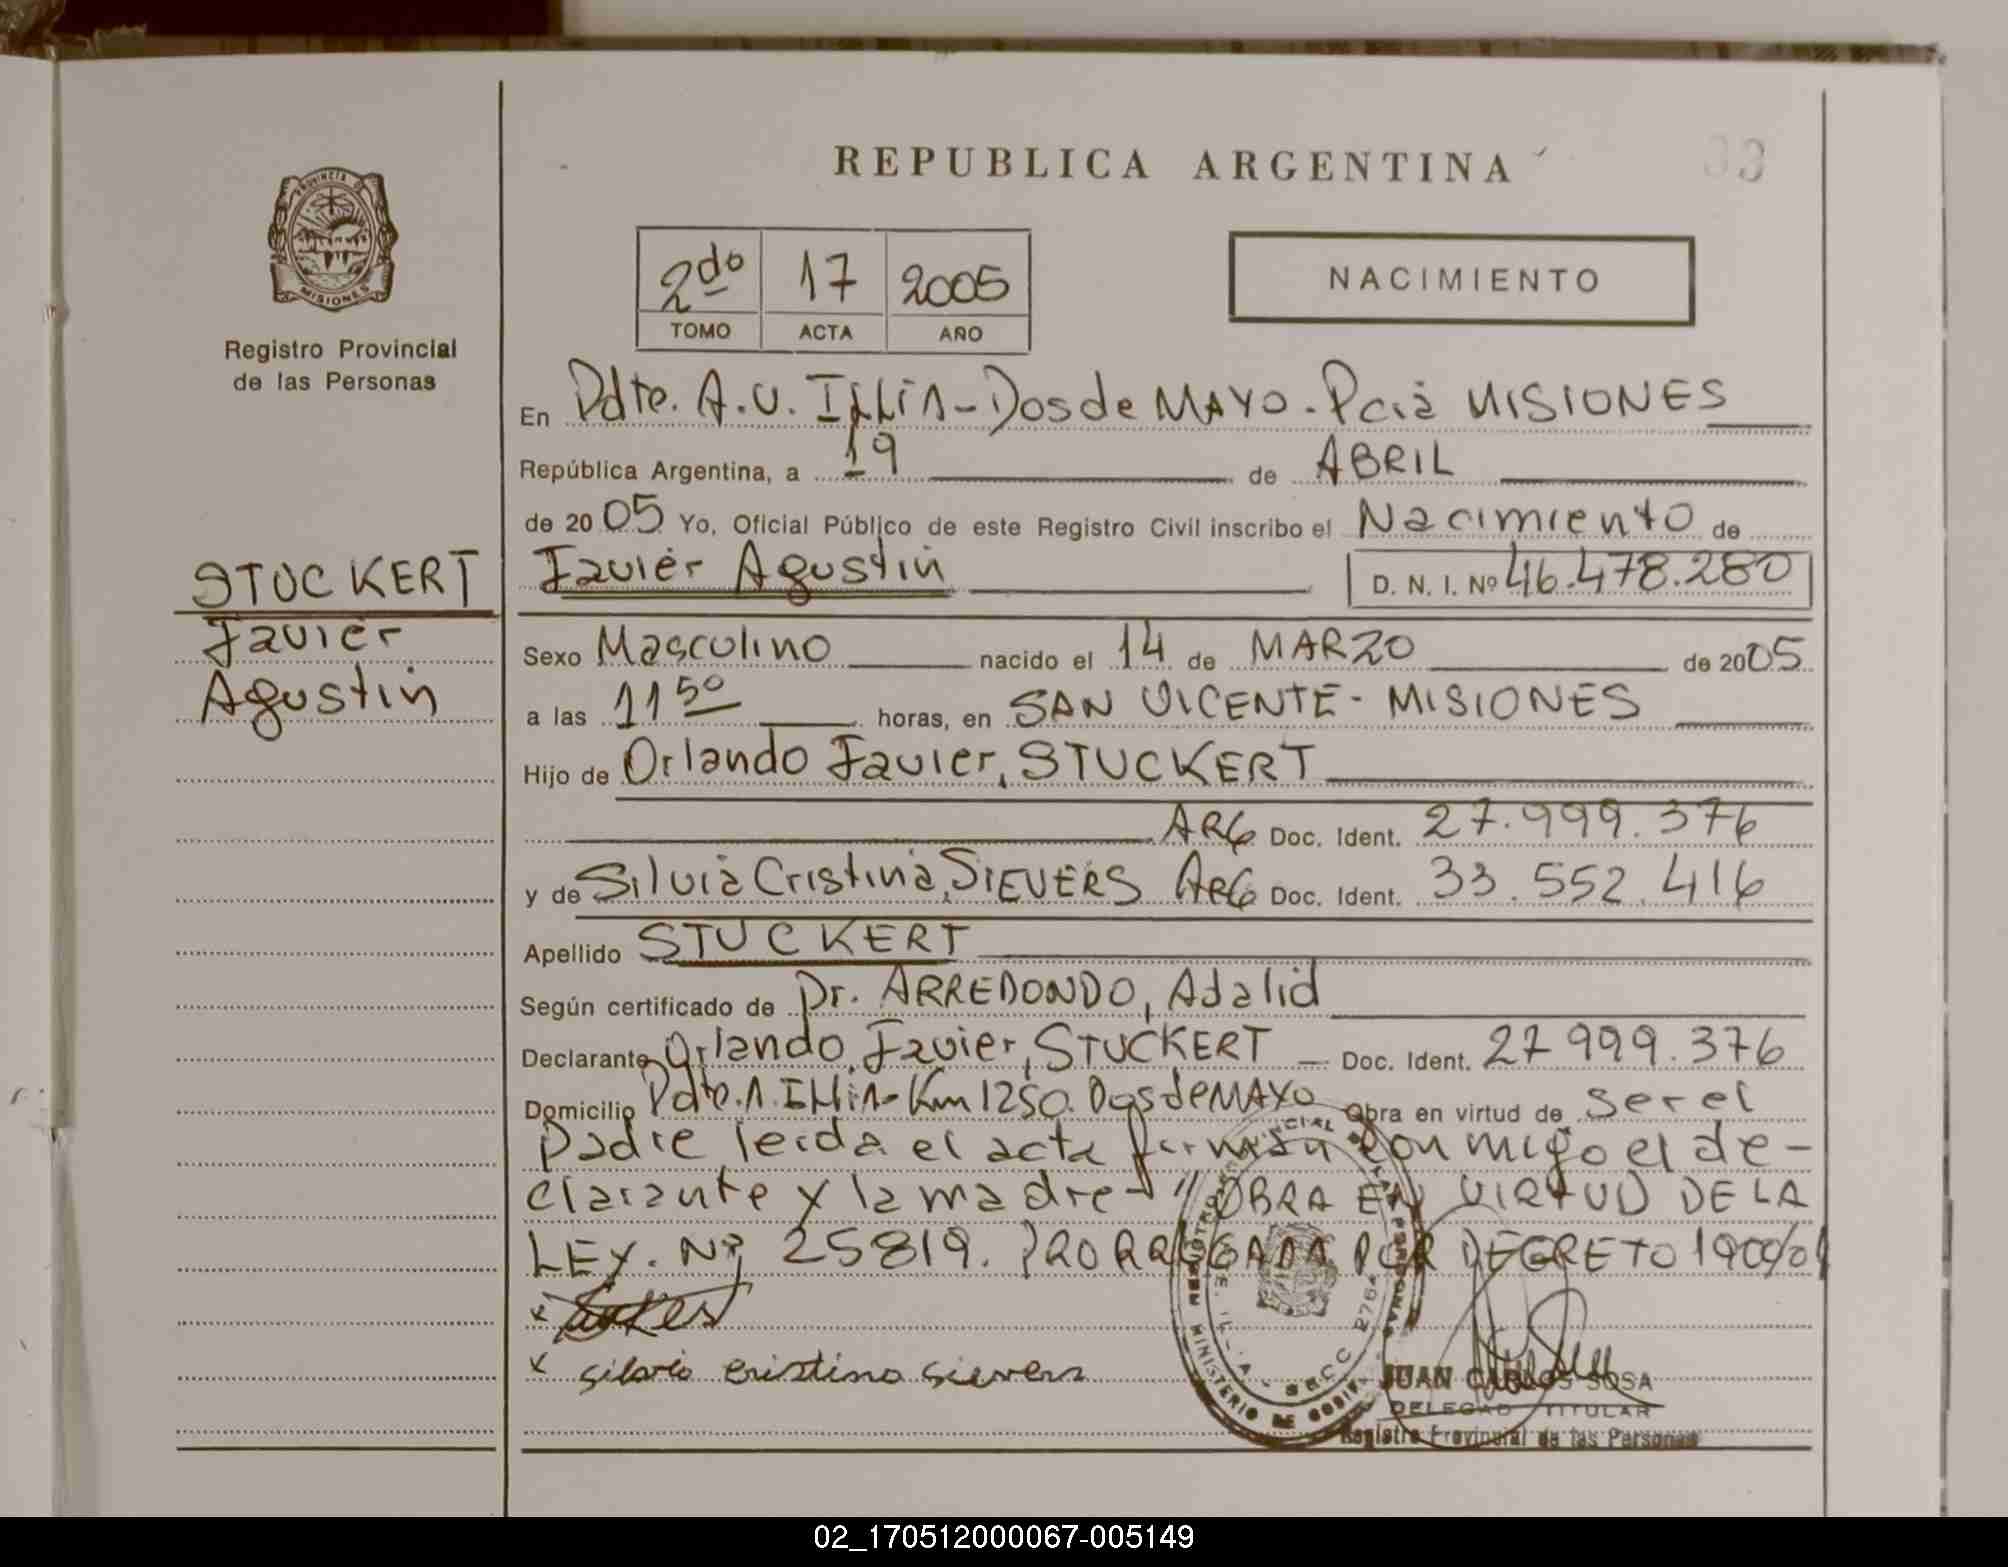 REPUBLICA ARGENTINA
33
PROVINCIA DE
MISIONES
Registro Provincial
de las Personas
2do 17 2005
TOMO ACTA AÑO
NACIMIENTO
En Pdte. A.U. ILLIA - Dos de MAYO - Pcia MISIONES
República Argentina, a 19 de ABRIL
de 2005 Yo, Oficial Público de este Registro Civil inscribo el Nacimiento de
STUCKERT
Javier
Agustin
Javier Agustin D. N. I. Nº 46.478.280
Sexo Masculino nacido el 14 de MARZO de 2005
a las 11 50 horas, en SAN VICENTE - MISIONES
Hijo de Orlando Javier, STUCKERT
ARG Doc. Ident. 27.999.376
y de Silvia Cristina, SIEVERS ARG Doc. Ident. 33.552.416
Apellido STUCKERT
Según certificado de Dr. ARREDONDO, Adalid
Declarante Orlando Javier, STUCKERT Doc. Ident. 27 999.376
Domicilio Pdte. A. Illia - Km 1250. Dos de MAYO Obra en virtud de ser el
padre leida el acta firman conmigo el de-
clarante y la madre - "OBRA EN VIRTUD DE LA
LEY. Nº 25819. PRORROGADA POR DECRETO
x
x silvia cristina sievers
JUAN CARLOS SOSA
DELEGADO TITULAR
Registro Provincial de las Personas
02_170512000067-005149